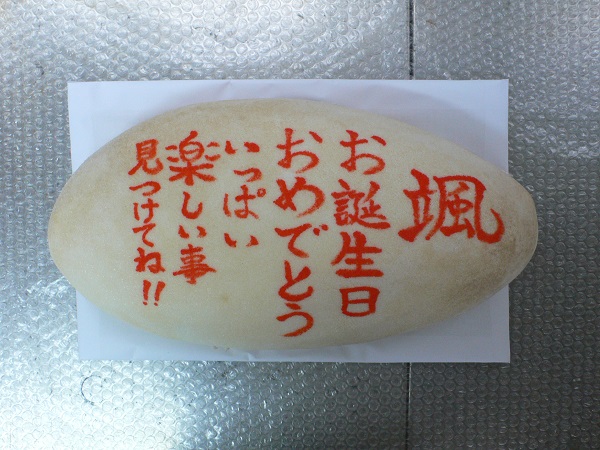 颯
お誕生日
おめでとう
いっぱい
楽しい事
見つけてね!!